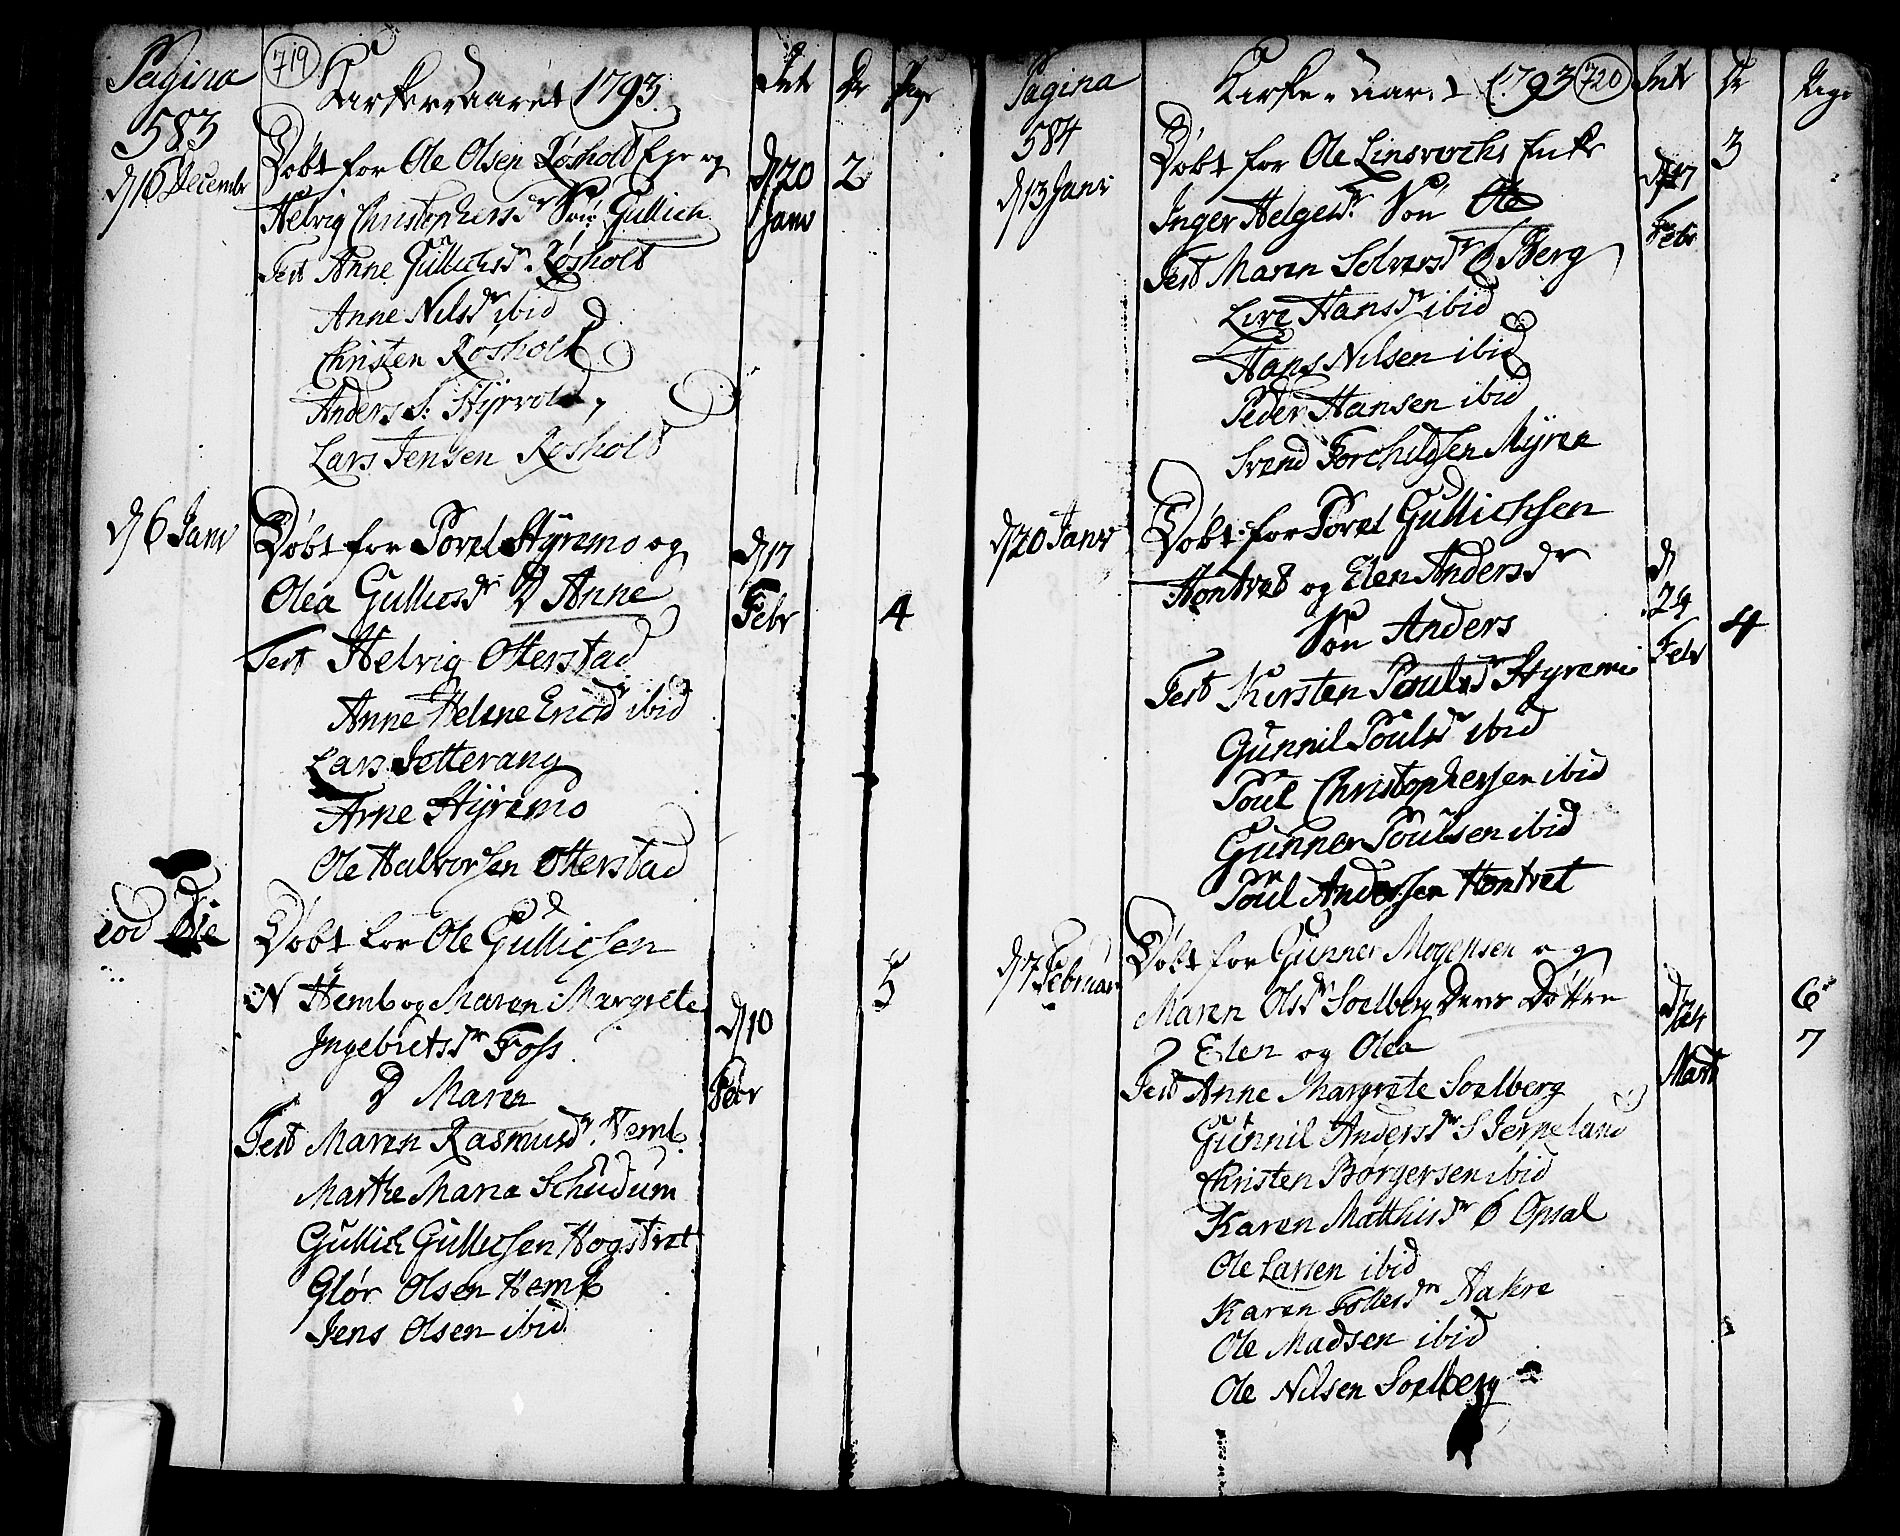 Pagina 719 Kirke-Aaret 1793. Int Dr Pige
583
d 16 Decembr Døbt for Ole Olsen Røsholt Eje og d 20 2
Helvig Christophersdr Søn Gullich Janv
Test Anne Gullichsdr Røsholt
Anne Nilsdr ibid
Christen Røsholt
Anders S: Styrvold
Lars Jensen Røsholt
d 6 Janv Døbt for Povel Styremo og d 17
Olea Gullicsdr D Anne Febr 4
Test Helvig Otterstad
Anne Helene Ericsdr ibid
Lars Setterang
Arne Styremo
Ole Halvorsen Otterstad
eod Die Døbt for Ole Gullicsen
N Hemb og Maren Margrete 5
Ingebretsdr Foss d 10
D Maren Febr
Test Maren Rasmusdr Hemb
Marthe Maria Schudum
Gullich Gullicsen Hogstvet
Glør Olsen Hemb
Jens Olsen ibid
Pagina Kirke-aaret 1793 720 Int Dr Pige
584
d 13 Janv Døbt for Ole Linsverchs Enke d 17 3
Inger Helgesdr Søn Ole Febr
Test Maren Selversdr Ø Berg
Live Hansdr ibid
Hans Nilsen ibid
Peder Hansen ibid
Svend Torchildsen Myren
d 20 Janv Døbt for Povel Gullichsen d
Hontvet og Elen Andersdr 24
Søn Anders Febr 4
Test Kirsten Poulsdr Styremo
Gunnil Poulsdr ibid
Poul Christophersen ibid
Gunner Poulsen ibid
Poul Andersen Hontvet
d 7 Februar Døbt for Gunner Mogensen og
Maren Olsdr Soelberg Deres Døttre 6
Elen og Olea Marti 7
Test Anne Margrete Soelberg
Gunnil Andersdr S Jerpeland
Christen Børgersen ibid
Karen Matthisdr Ø Opsal
Ole Larsen ibid
Karen Tollesdr Aakre
Ole Madsen ibid
Ole Nilsen Soelberg